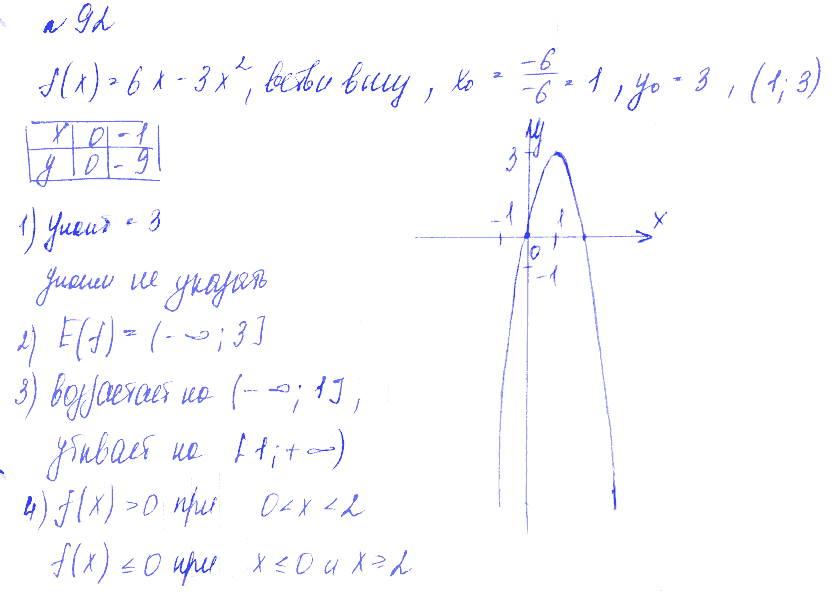 № 92
f(x) = 6x - 3x², ветви вниз, x₀ = -6/-6 = 1, y₀ = 3, (1; 3)
x 0 -1
y 0 -9
y
3
-1 1 x
0
-1
1) yнаиб = 3
yнаим не указать
2) E(f) = (-∞; 3]
3) возрастает на (-∞; 1],
убывает на [1; +∞)
4) f(x) > 0 при 0 < x < 2
f(x) ≤ 0 при x ≤ 0 и x ≥ 2